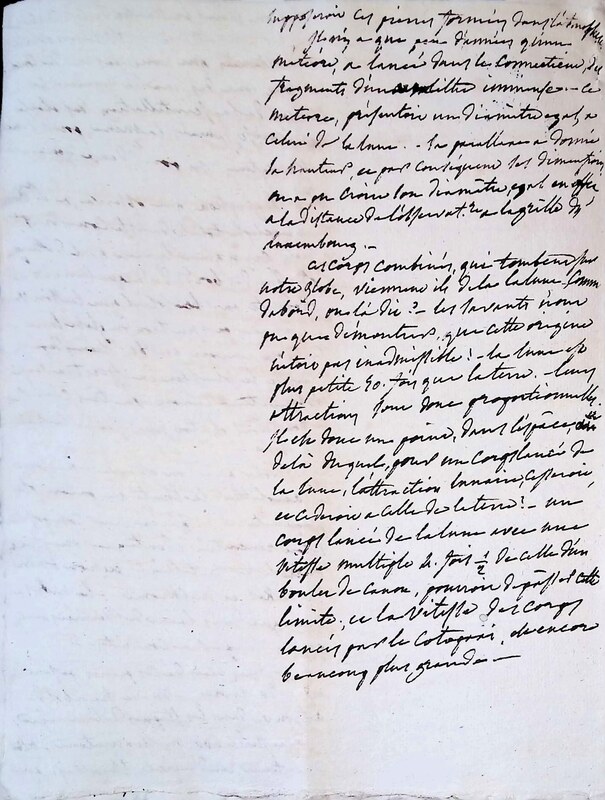 supposeroit ces pierres formées dans l'atmosphère
Il n'y a que peu d'années qu'un
météore, a lancé dans le Connecticut, des
fragments d'un aerolithe immense. - ce
meteore, présentoit un diamètre egal a
celui de la lune. - la parallaxe a donné
sa hauteur, et par conséquent ses dimensions
on a pu croire son diamètre egal en effet
a la distance de l'observat.re a la grille du
luxembourg. -
ces corps combinés, qui tombent sur
notre globe, viennent ils de la lune comme
dabord, on l'a dit? - les savants n'ont
pu que démontrer, que cette origine
n'etoit pas inadmissible! - la lune est
plus petite 50. fois que la terre. - leurs
attractions sont donc proportionnelles.
Il est donc un point, dans l'éspace,
delà duquel, pour un corps lancé de
la lune, l'attraction lunaire cesseroit,
et cederoit a celle de la terre! - un
corps lancé de la lune avec une
vitesse multiple 4. fois ½ de celle d'un
boulet de canon, pourroit dépasser cette
limite, et la vitesse des corps
lancés par le Cotopaxi, est encore
beaucoup plus grande -